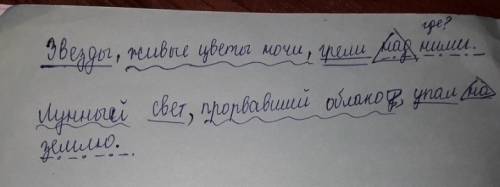 где?
Звезды, живые цветы ночи, грели над ними.
Лунный свет, прорвавший облако, упал на
землю.